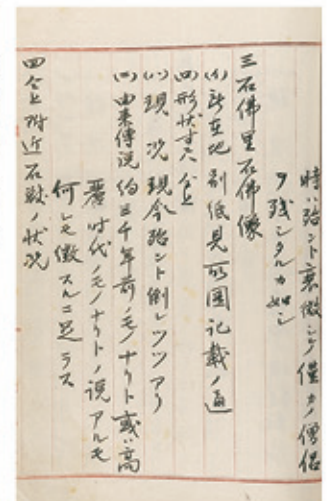 時ハ殆ント衰微シテ僅カノ僧侶
ヲ残シタルカ如シ
三石佛里石佛像
(イ)所在地別紙見取圖記載ノ通
(ロ)形状寸尺仝上
(ハ)現況現今殆ント倒レツツアリ
(ニ)由来傳説約三千年前ノモノナリト或ハ高
麗時代ノモノナリトノ説アルモ
何レモ徴スルニ足ラス
四仝上附近石獣ノ状况